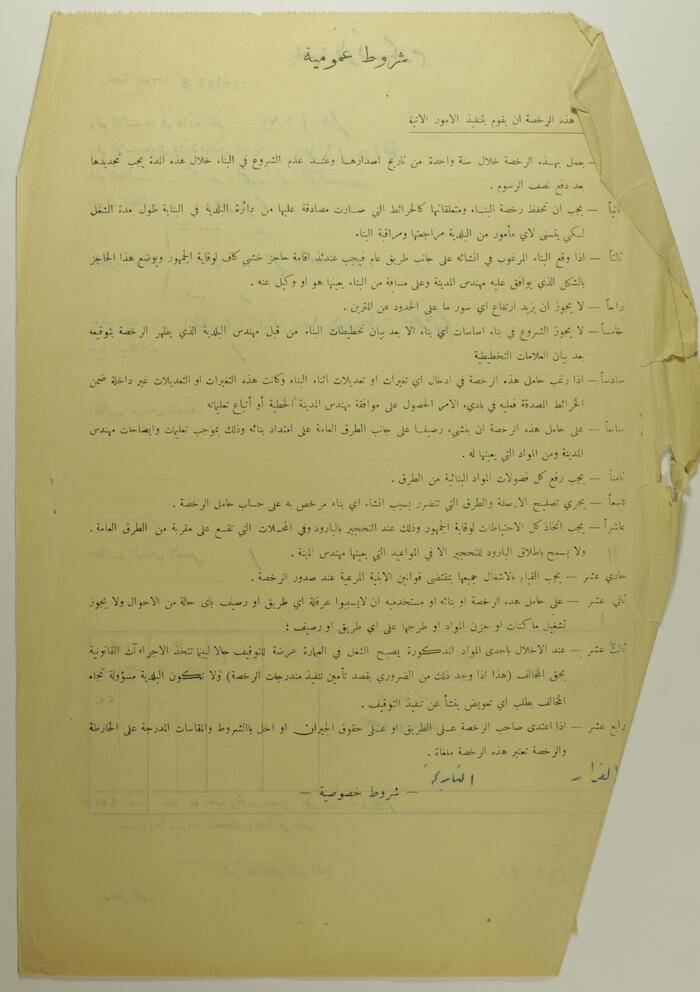 شروط عمومية
هذه الرخصة ان يقوم بتنفيذ الامور الاتية
— يعمل بهذه الرخصة خلال سنة واحدة من تاريخ اصدارها وعند عدم الشروع في البناء خلال هذه المدة يجب تجديدها
بعد دفع نصف الرسوم .
ثانياً — يجب ان تحفظ رخصة البناء ومتعلقاتها كالخرائط التي صارت مصادقة عليها من دائرة البلدية في البناية طول مدة الشغل
لكي يتسنى لاي مأمور من البلدية مراجعتها ومراقبة البناء
ثالثاً — اذا وقع البناء المرغوب في انشائه على جانب طريق عام فيجب عندئذ اقامة حاجز خشبي كاف لوقاية الجمهور ويوضع هذا الحاجز
بالشكل الذي يوافق عليه مهندس المدينة وعلى مسافة من البناء يعينها هو او وكيل عنه .
رابعاً — لا يجوز ان يزيد ارتفاع اي سور ما على الحدود عن المترين .
خامساً — لا يجوز الشروع في بناء اساسات اي بناء الا بعد بيان تخطيطات البناء من قبل مهندس البلدية الذي يظهر الرخصة بتوقيعه
بعد بيان العلامات التخطيطية
سادساً — اذا رغب حامل هذه الرخصة في ادخال اي تغيرات او تعديلات اثناء البناء وكانت هذه التغيرات او التعديلات غير داخلة ضمن
الخرائط المصدقة فعليه في باديء الامر الحصول على موافقة مهندس المدينة الخطية أو أتباع تعليماته
سابعاً — على حامل هذه الرخصة ان ينشيء رصيفا على جانب الطرق العامة على امتداد بنائه وذلك بموجب تعليمات وايضاحات مهندس
المدينة ومن المواد التي يعينها له .
ثامناً — يجب رفع كل فضولات المواد البنائية من الطرق .
تاسعاً — يجري تصليح الارصفة والطرق التي تتضرر بسبب انشاء اي بناء مرخص به على حساب حامل الرخصة .
عاشراً — يجب اتخاذ كل الاحتياطات لوقاية الجمهور وذلك عند التحجير بالبارود وفي المحلات التي تقع على مقربة من الطرق العامة .
ولا يسمح باطلاق البارود للتحجير الا في المواعيد التي يعينها مهندس المينة .
حادي عشر — يجب القيام بالاشغال جميعها بمقتضى قوانين الابنية المرعية عند صدور الرخصة .
ثاني عشر — على حامل هذه الرخصة او بنائه او مستخدميه ان لايسببوا عرقلة اي طريق او رصيف باى حالة من الاحوال ولا يجوز
تشغيل ماكنات او خزن المواد او طرحها على اي طريق او رصيف ؛
ثالث عشر — عند الاخلال باحدى المواد المذكورة يصبح الشغل في العمارة عرضة للتوقيف حالا لبينما تتخذ الاجراءآت القانونية
بحق المخالف (هذا اذا وجد ذلك من الضروري بقصد تأمين تنفيذ مندرجات الرخصة) ولا تكون البلدية مسؤولة تجاه
المخالف بطلب اي تعويض ينشأ عن تنفيذ التوقيف .
رابع عشر — اذا اعتدى صاحب الرخصة على الطريق او على حقوق الجيران او اخل باالشروط والمقاسات المدرجة على الخارطة
والرخصة تعتبر هذه الرخصة ملغاة .
القرار التاريخ
— شروط خصوصية —